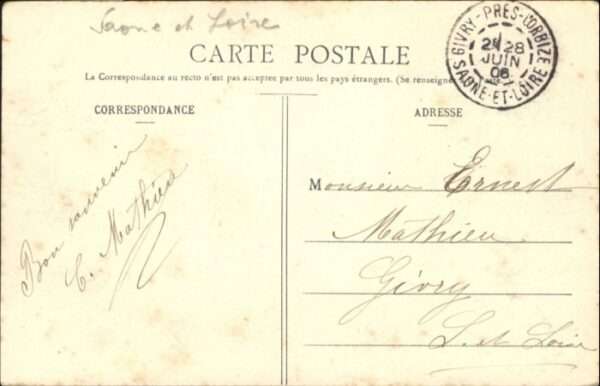 Saone et Loire
CARTE POSTALE
La Correspondance au recto n'est pas acceptée par tous les pays étrangers. (Se renseigner
GIVRY-PRÈS-L'ORBIZE
28
JUIN
06
SAONE-ET-LOIRE
CORRESPONDANCE
Bon souvenir
C. Mathieu
ADRESSE
Monsieur Ernest
Mathieu
Givry
S. et Loire